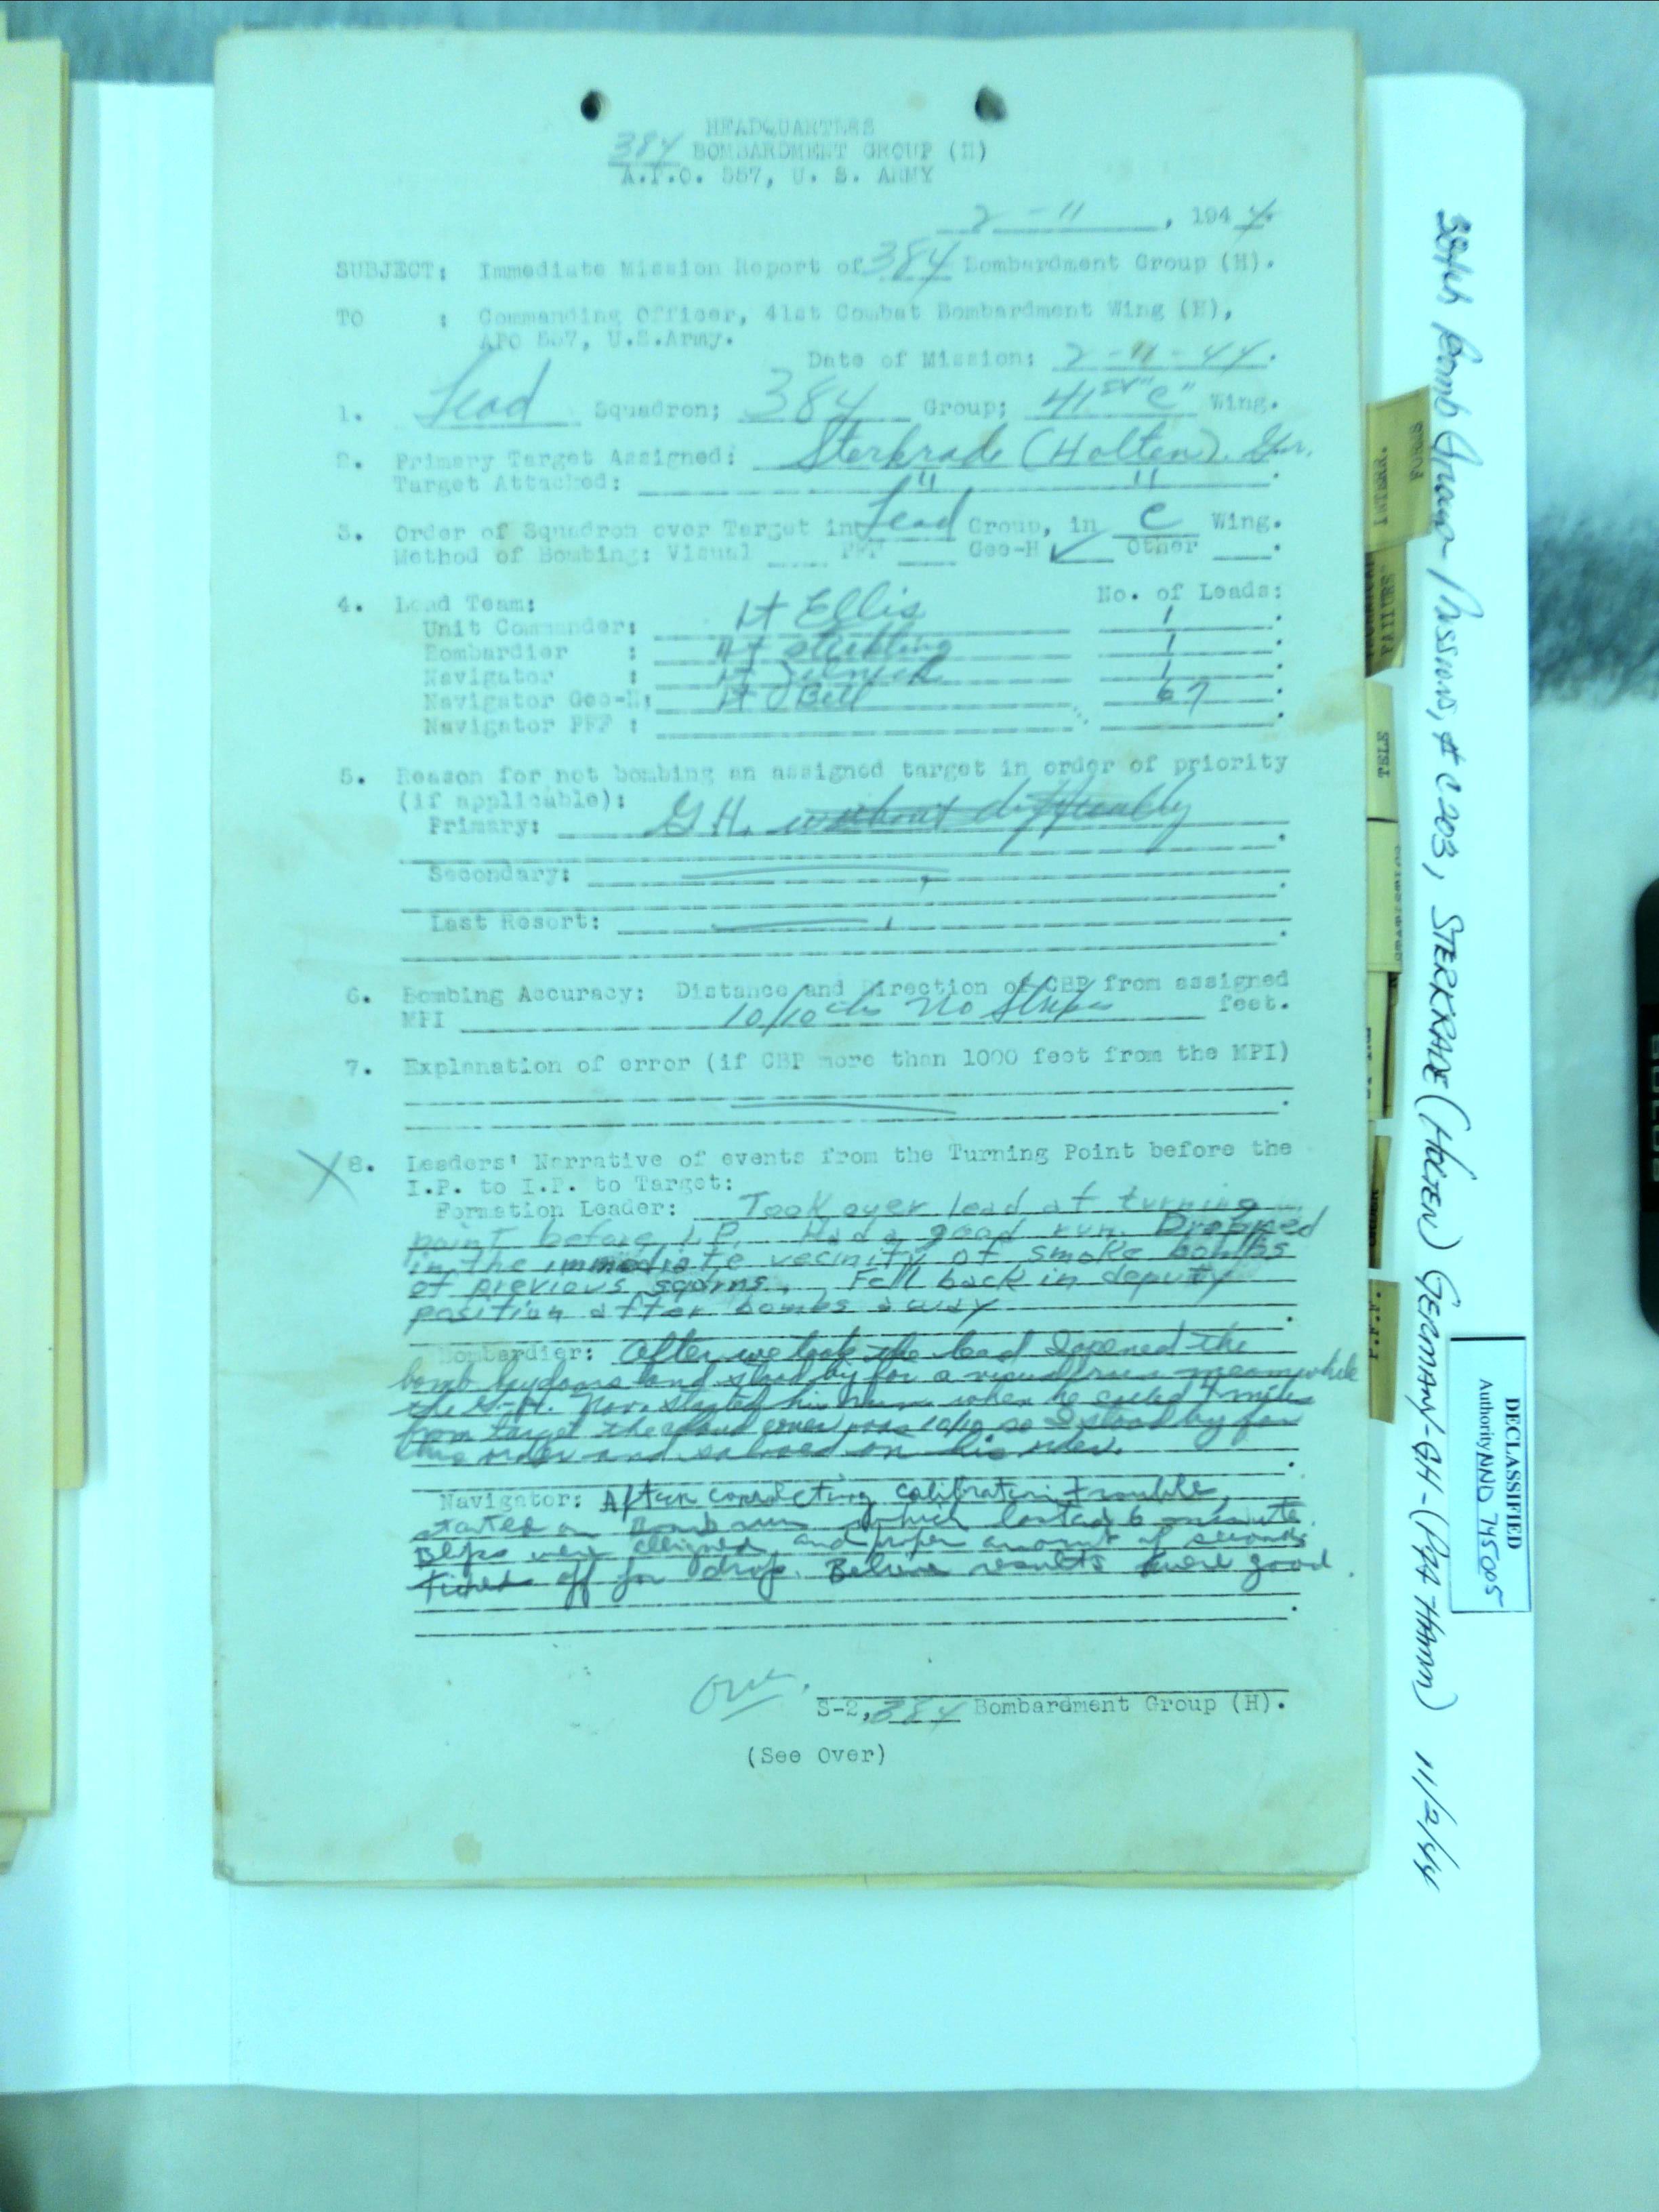 HEADQUARTERS
384 BOMBARDMENT GROUP (H)
A.P.O. 557, U. S. ARMY
2-11, 1944.
SUBJECT: Immediate Mission Report of 384 Bombardment Group (H).
TO : Commanding Officer, 41st Combat Bombardment Wing (H),
APO 557, U.S.Army.
Date of Mission: 2-11-44.
1. Lead Squadron; 384 Group; 41st "C" Wing.
2. Primary Target Assigned: Sterkrade (Holten). Ger.
Target Attacked: " "
3. Order of Squadron over Target in Lead Group, in C Wing.
Method of Bombing: Visual PFF Gee-H ✓ Other
4. Lead Team: No. of Leads:
Unit Commander: Lt Ellis 1
Bombardier : Lt 1
Navigator : Lt 1
Navigator Gee-H: Lt Bell 67
Navigator PFF :
5. Reason for not bombing an assigned target in order of priority
(if applicable):
Primary: G.H. without difficulty
Secondary:
Last Resort:
6. Bombing Accuracy: Distance and Direction of CBP from assigned
MPI 10/10 No Strikes feet.
7. Explanation of error (if CBP more than 1000 feet from the MPI)
X 8. Leaders' Narrative of events from the Turning Point before the
I.P. to I.P. to Target:
Formation Leader: Took over lead at turning
point before I.P. Had a good run. Dropped
in the immediate vecinity of smoke bombs
of previous sqdrns. Fell back in deputy
position after bombs away
Bombardier: After we took the lead I opened the
bomb bay doors and stood by for a visual run meanwhile
the G-H. Nav. started his run when he called miles
from target the cloud cover was 10/10 so I stood by for
his order and salvoed on his order.
Navigator: After correcting calibration trouble,
started on Bomb run which lasted 6 minute.
Blips were alligned, and proper amount of seconds
ticked off for drop. Believe results were good.
S-2, 384 Bombardment Group (H).
(See Over)
384th Bomb Group - Mission, # C203, STERKRADE (HOLTEN) GERMANY-GH-(P/A HAMM) 11/2/44
DECLASSIFIED
Authority NND 745005
INTERR.
FORMS
FAILURE
TELE
P.F.F.